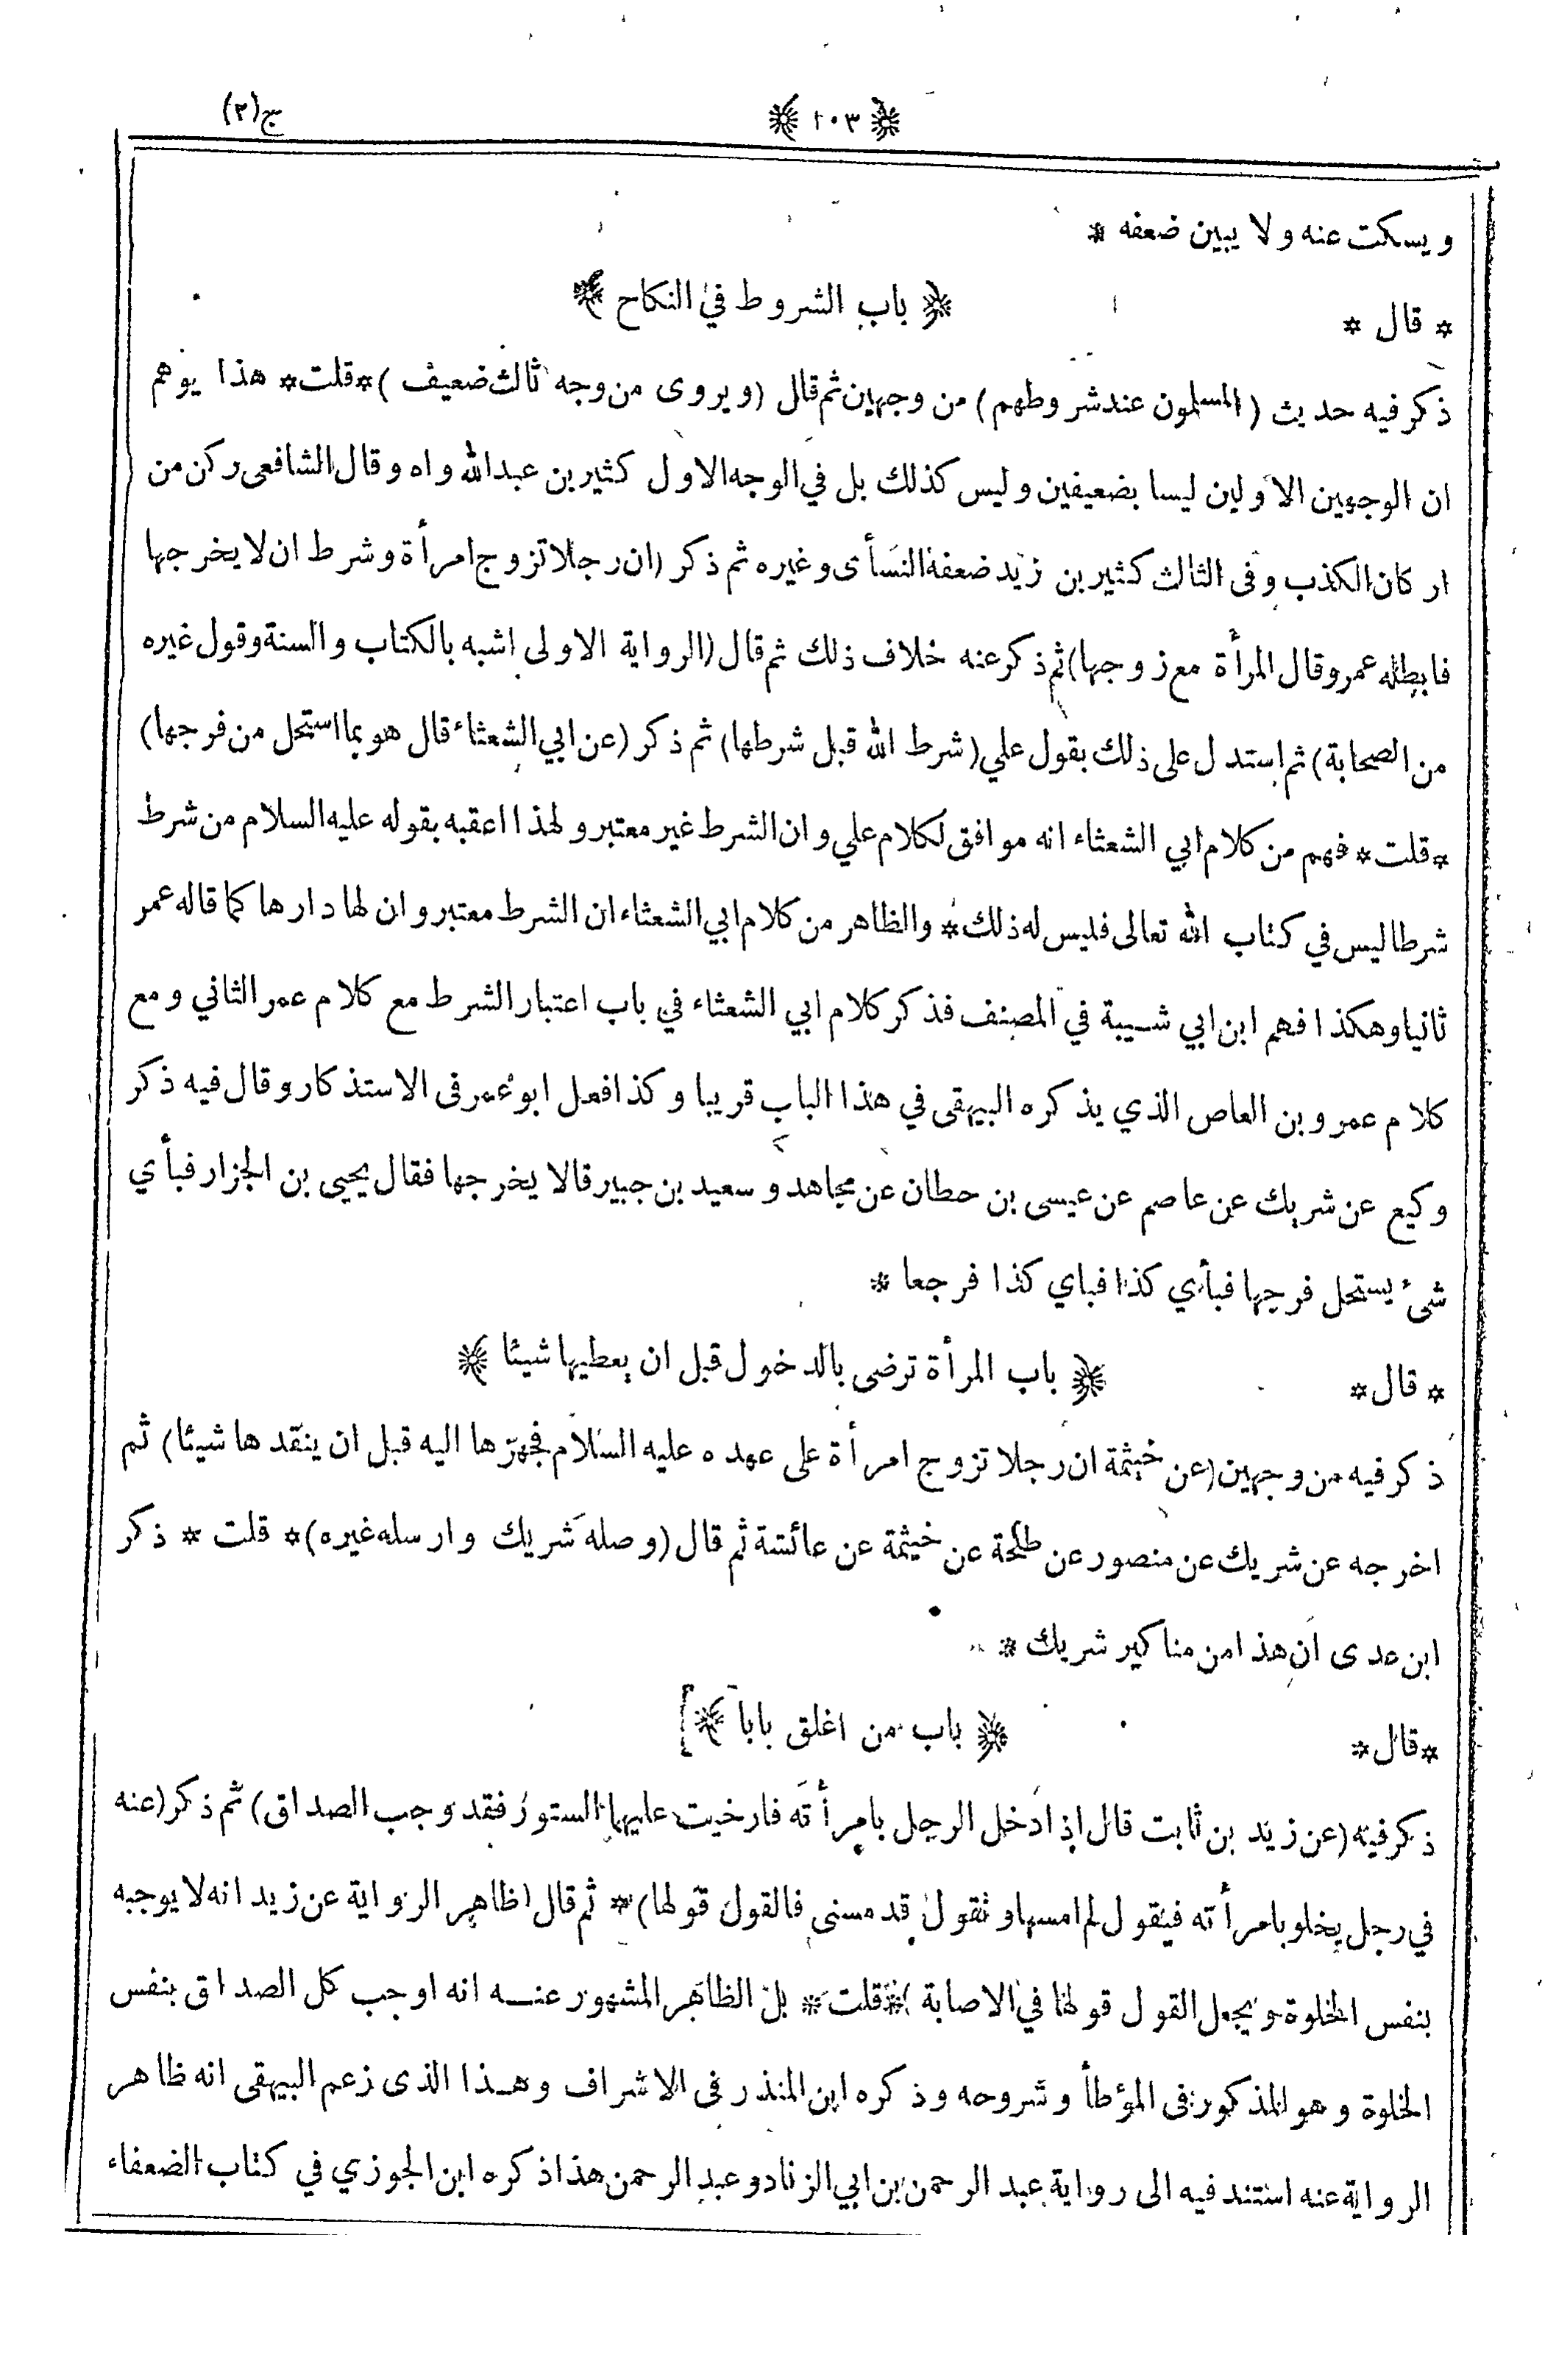 ﴿ ١٠٣ ﴾ ج(٢)
ويسكت عنه ولا يبين ضعفه *
* قال * ﴿ باب الشروط في النكاح ﴾
ذكر فيه حديث (المسلمون عند شروطهم) من وجهين ثم قال (ويروى من وجه ثالث ضعيف) *قلت* هذا يوهم
ان الوجهين الاولين ليسا بضعيفين وليس كذلك بل في الوجه الاول كثير بن عبدالله واه وقال الشافعى ركن من
اركان الكذب وفى الثالث كثير بن زيد ضعفه النسأى وغيره ثم ذكر (ان رجلا تزوج امرأة وشرط ان لا يخرجها
فابطله عمر وقال المرأة مع زوجها) ثم ذكر عنه خلاف ذلك ثم قال (الرواية الاولى اشبه بالكتاب والسنة وقول غيره
من الصحابة) ثم استدل على ذلك بقول علي (شرط الله قبل شرطها) ثم ذكر (عن ابي الشعثاء قال هو بما استحل من فرجها)
*قلت* فهم من كلام ابي الشعثاء انه موافق لكلام علي وان الشرط غير معتبر ولهذا اعقبه بقوله عليه السلام من شرط
شرطا ليس في كتاب الله تعالى فليس له ذلك * والظاهر من كلام ابي الشعثاء ان الشرط معتبر وان لها دارها كما قاله عمر
ثانيا وهكذا فهم ابن ابي شيبة في المصنف فذكر كلام ابي الشعثاء في باب اعتبار الشرط مع كلام عمر الثاني ومع
كلام عمرو بن العاص الذي يذكره البيهقى في هذا الباب قريبا وكذا فعل ابو عمر فى الاستذكار وقال فيه ذكر
وكيع عن شريك عن عاصم عن عيسى بن حطان عن مجاهد وسعيد بن جبير قالا يخرجها فقال يحيى بن الجزار فبأي
شىء يستحل فرجها فبأي كذا فباي كذا فرجعا *
* قال * ﴿ باب المرأة ترضى بالدخول قبل ان يعطيها شيئا ﴾
ذكر فيه من وجهين (عن خيثمة ان رجلا تزوج امرأة على عهده عليه السلام فجهزها اليه قبل ان ينقدها شيئا) ثم
اخرجه عن شريك عن منصور عن طلحة عن خيثمة عن عائشة ثم قال (وصله شريك وارسله غيره) * قلت * ذكر
ابن عدى ان هذا من مناكير شريك *
*قال* ﴿ باب من اغلق بابا ﴾]
ذكر فيه (عن زيد بن ثابت قال اذا دخل الرجل بامرأته فارخيت عليهما الستور فقد وجب الصداق) ثم ذكر (عنه
في رجل يخلو بامرأته فيقول لم امسها وتقول قد مسنى فالقول قولها) * ثم قال (ظاهر الرواية عن زيد انه لا يوجبه
بنفس الخلوة ويجعل القول قولها في الاصابة) *قلت* بل الظاهر المشهور عنه انه اوجب كل الصداق بنفس
الخلوة وهو المذكور فى المؤطأ وشروحه وذكره ابن المنذر فى الاشراف وهذا الذى زعم البيهقى انه ظاهر
الرواية عنه استند فيه الى رواية عبد الرحمن بن ابي الزناد وعبد الرحمن هذا ذكره ابن الجوزي في كتاب الضعفاء